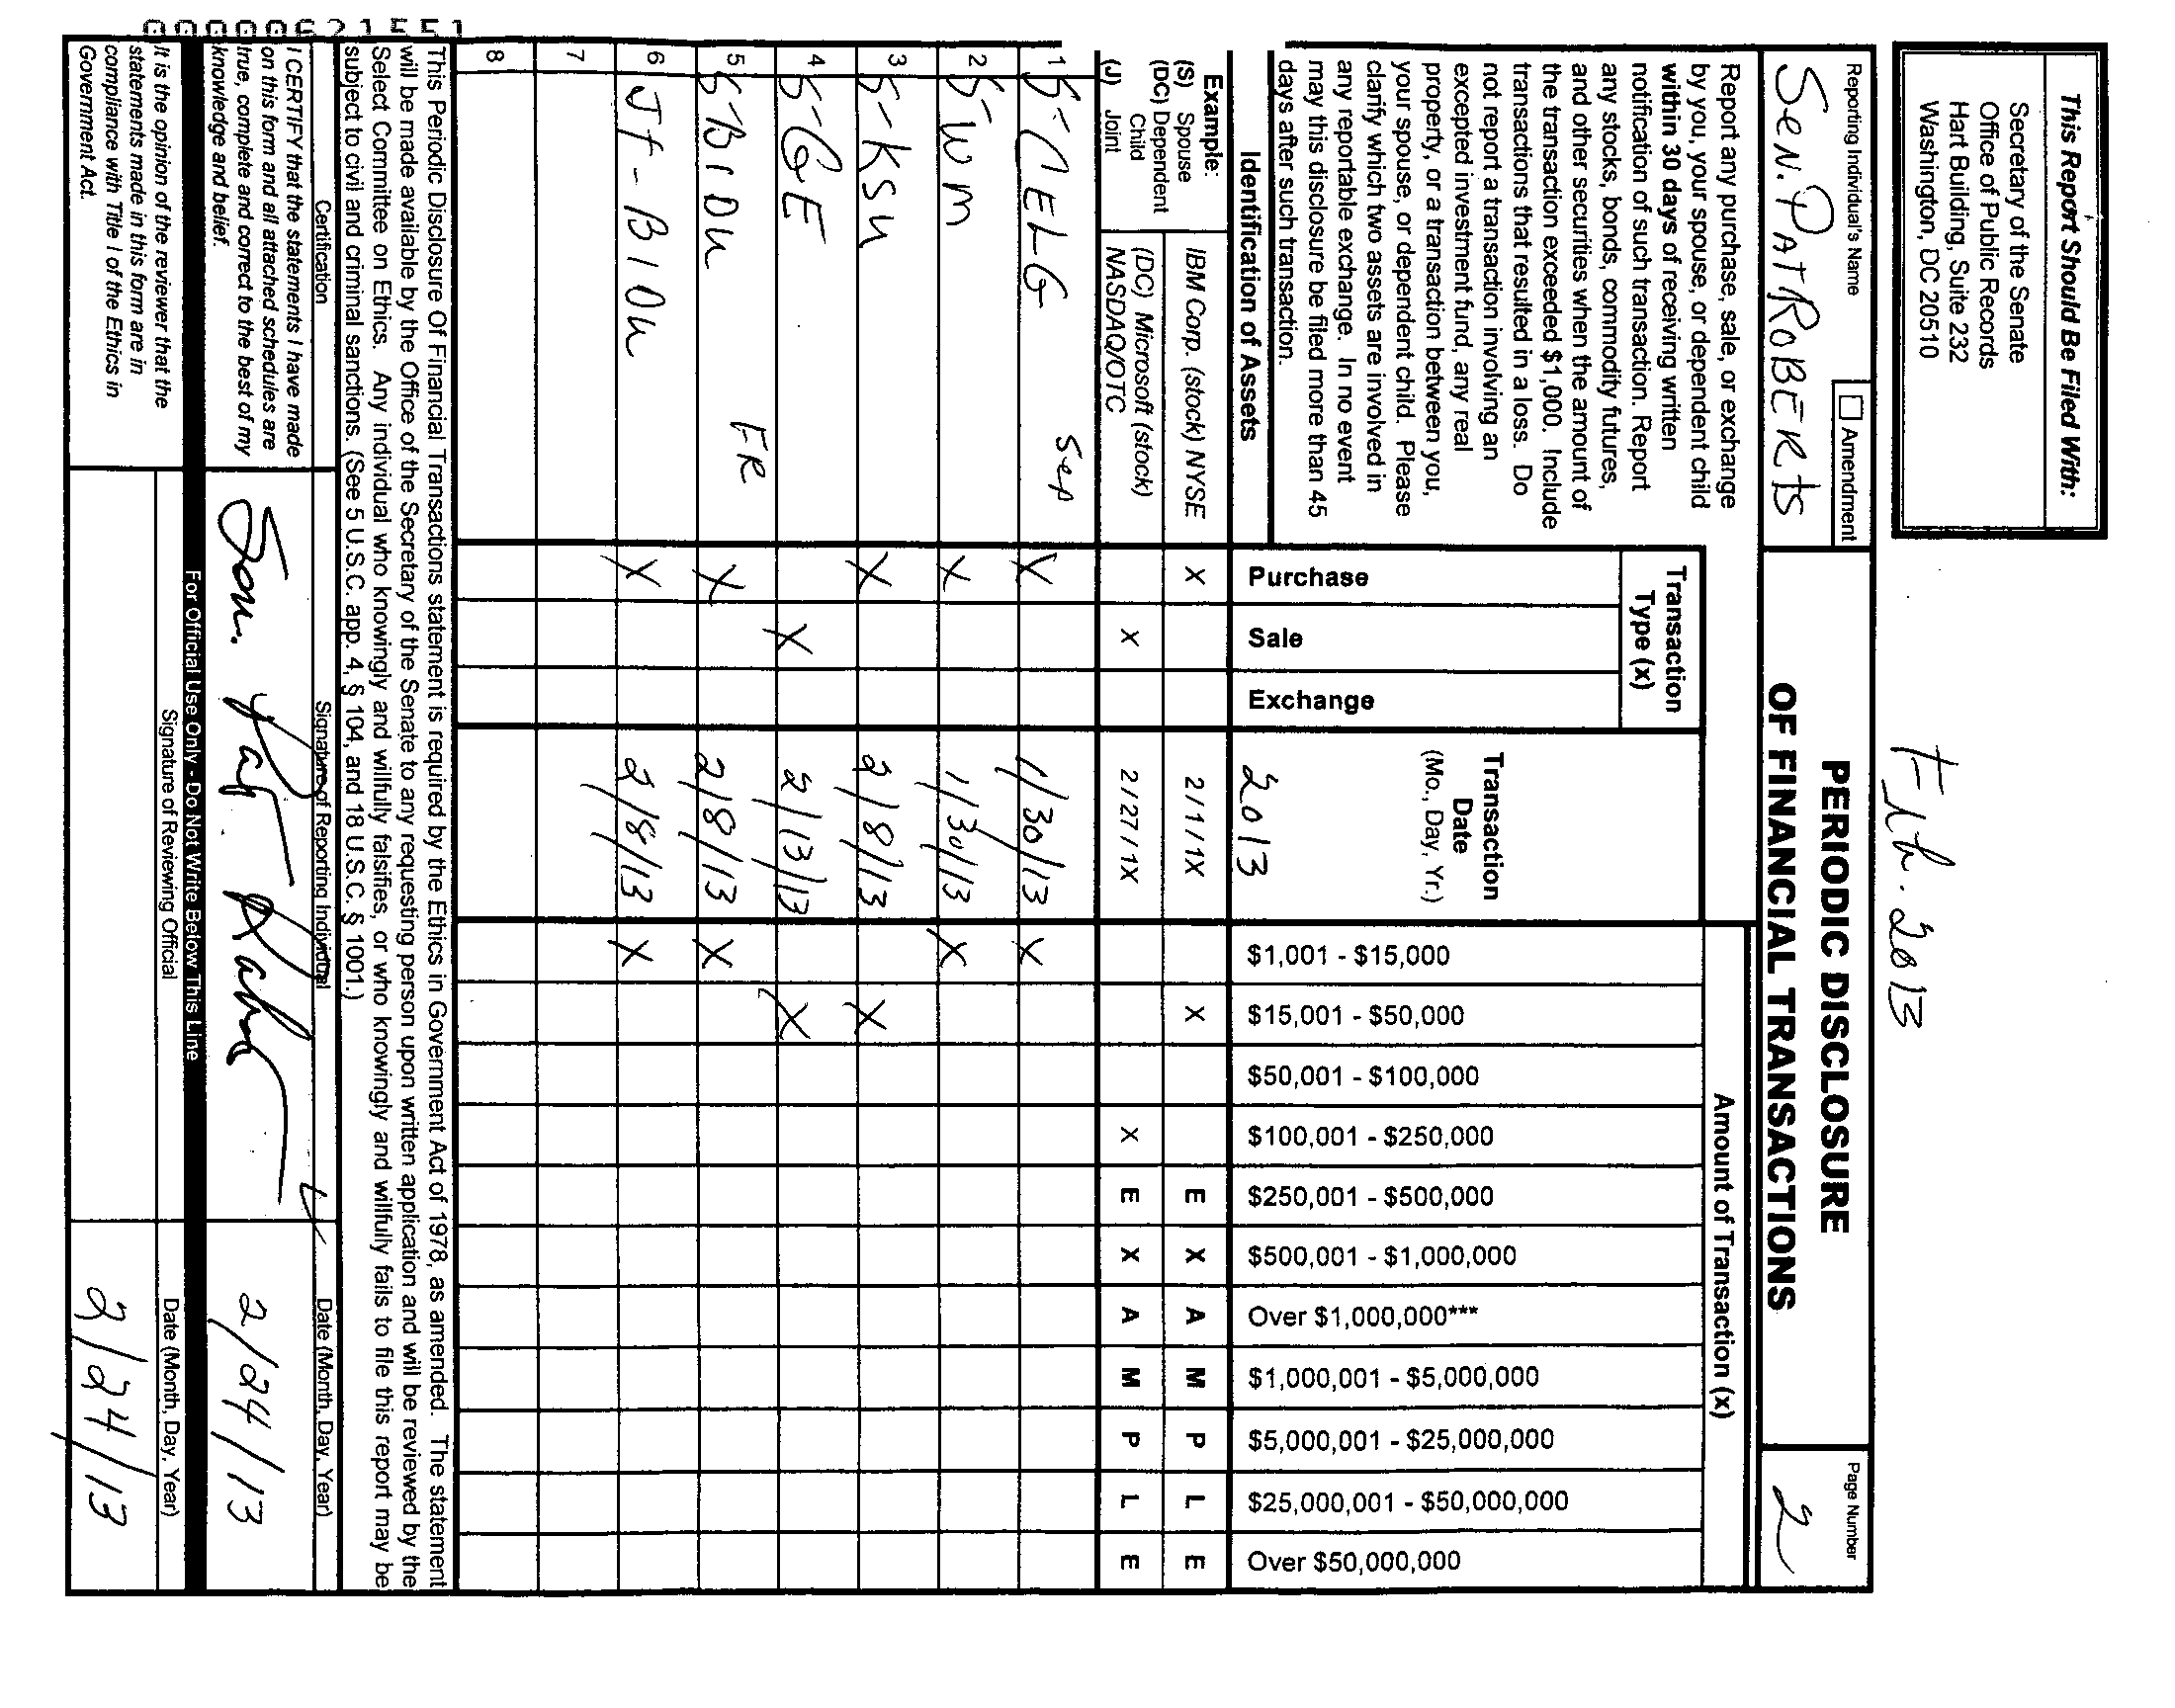 Feb. 2013
This Report Should Be Filed With:
Secretary of the Senate
Office of Public Records
Hart Building, Suite 232
Washington, DC 20510
PERIODIC DISCLOSURE
OF FINANCIAL TRANSACTIONS
Reporting Individual's Name
Amendment
SEN. PAT ROBERTS
Page Number
2
Report any purchase, sale, or exchange
by you, your spouse, or dependent child
within 30 days of receiving written
notification of such transaction. Report
any stocks, bonds, commodity futures,
and other securities when the amount of
the transaction exceeded $1,000. Include
transactions that resulted in a loss. Do
not report a transaction involving an
excepted investment fund, any real
property, or a transaction between you,
your spouse, or dependent child. Please
clarify which two assets are involved in
any reportable exchange. In no event
may this disclosure be filed more than 45
days after such transaction.
Identification of Assets
Transaction
Type (x)
Purchase
Sale
Exchange
Transaction
Date
(Mo., Day, Yr.)
2013
Amount of Transaction (x)
$1,001 - $15,000
$15,001 - $50,000
$50,001 - $100,000
$100,001 - $250,000
$250,001 - $500,000
$500,001 - $1,000,000
Over $1,000,000***
$1,000,001 - $5,000,000
$5,000,001 - $25,000,000
$25,000,001 - $50,000,000
Over $50,000,000
Example:
(S) Spouse
(DC) Dependent
Child
(J) Joint
IBM Corp. (stock) NYSE X 2 / 1 / 1X X E X A M P L E
(DC) Microsoft (stock)
NASDAQ/OTC X 2 / 27 / 1X X E X A M P L E
1 S-CELG Sep X 1/30/13 X
2 S-WM X 1/30/13 X
3 S-KSU X 2/8/13 X
4 S-GE X 2/13/13 X
5 S-BIDU FR X 2/8/13 X
6 Jt-BIDU X 2/8/13 X
7
8
This Periodic Disclosure Of Financial Transactions statement is required by the Ethics in Government Act of 1978, as amended. The statement
will be made available by the Office of the Secretary of the Senate to any requesting person upon written application and will be reviewed by the
Select Committee on Ethics. Any individual who knowingly and willfully falsifies, or who knowingly and willfully fails to file this report may be
subject to civil and criminal sanctions. (See 5 U.S.C. app. 4, § 104, and 18 U.S.C. § 1001.)
Certification
Signature of Reporting Individual
Date (Month, Day, Year)
I CERTIFY that the statements I have made
on this form and all attached schedules are
true, complete and correct to the best of my
knowledge and belief.
Sen. Pat Roberts
2/24/13
For Official Use Only - Do Not Write Below This Line
It is the opinion of the reviewer that the
statements made in this form are in
compliance with Title I of the Ethics in
Government Act.
Signature of Reviewing Official
Date (Month, Day, Year)
2/24/13